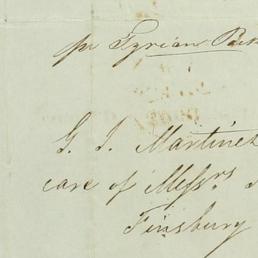 pr Tyrian
G. I. Martinez
care of Messrs
Finsbury